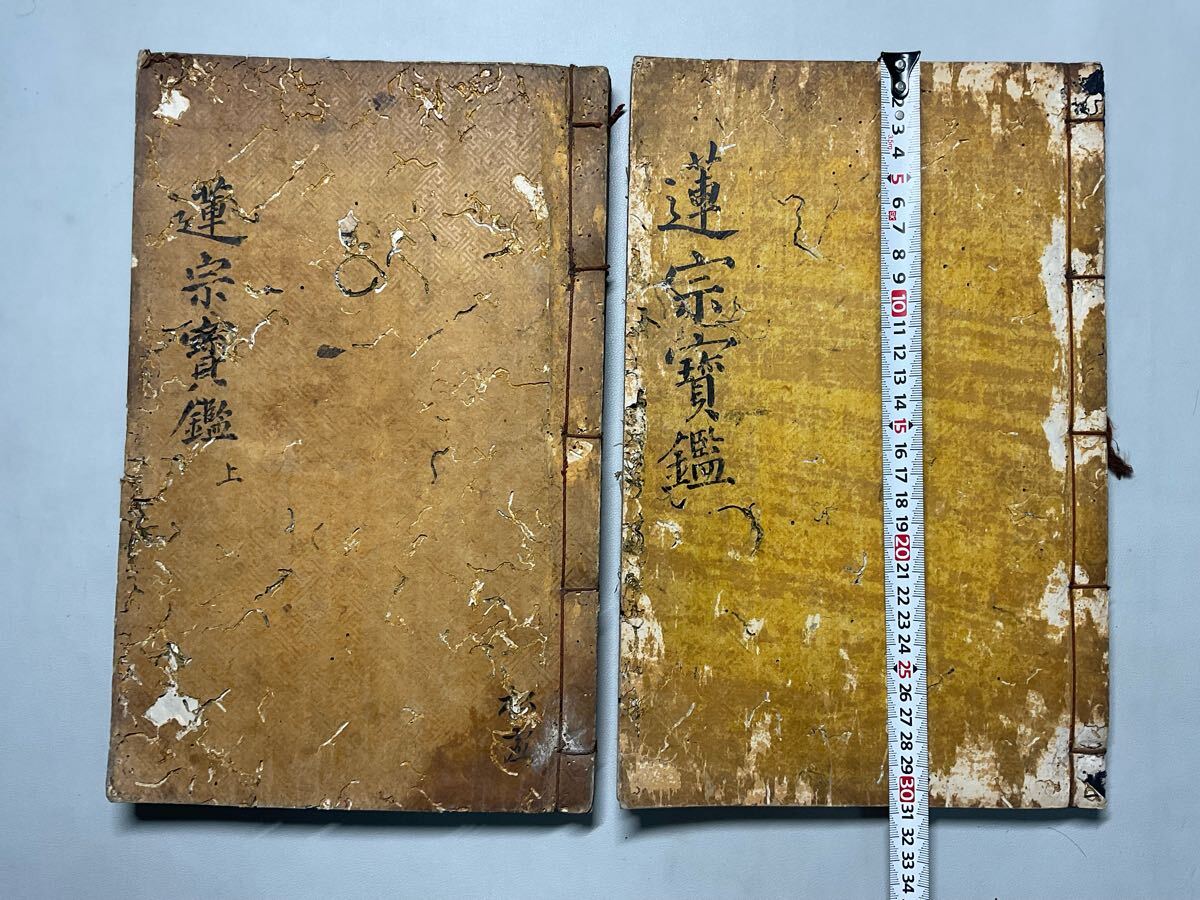 蓮宗寶鑑
上
蓮宗寶鑑
2
3
3.5m
4
5
6
7
8
9
10
11
12
13
14
15
16
17
18
19
20
21
22
23
24
25
26
27
28
29
30
31
32
33
34